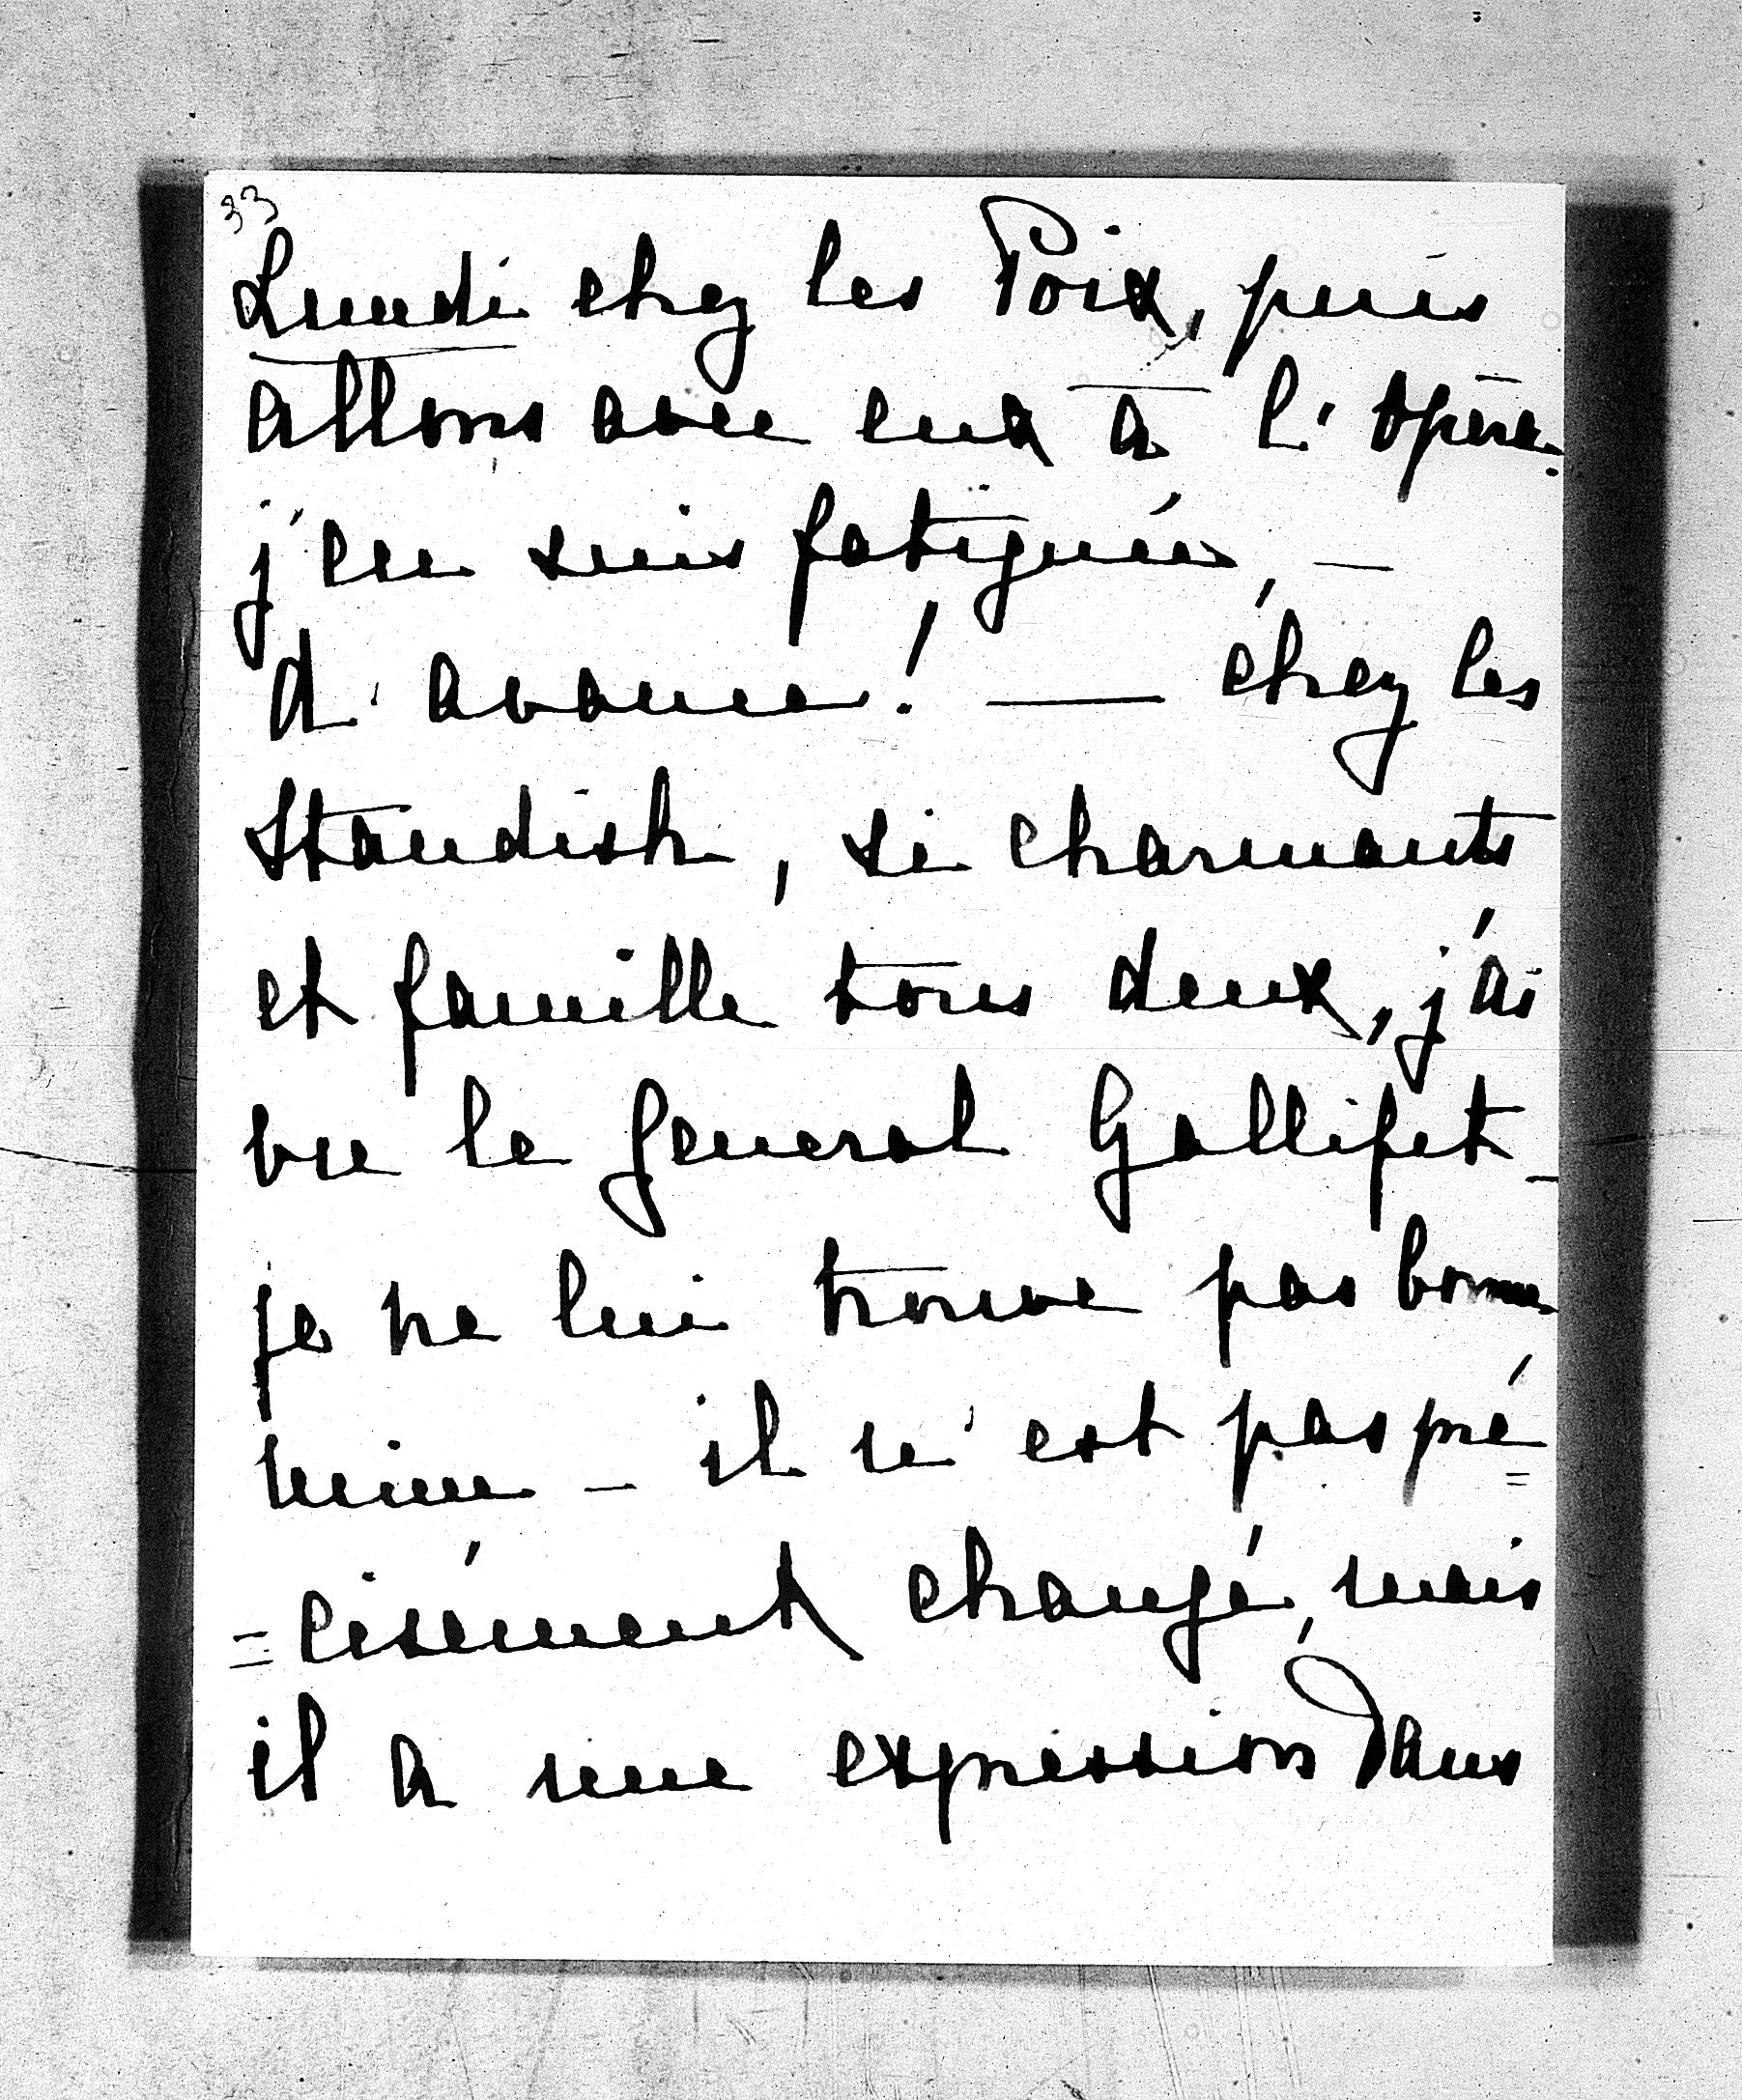 33
Lundi chez les Poix, puis
allons avec eux à l'opéra.
j'en suis fatiguée, —
d'avance! — chez les
Standish, si charmants
et famille tous deux, j'ai
vu le general Gallifet -
je ne lui trouve pas bonne
mine - il n'est pas pré
= cisément changé, mais
il a une expression dans